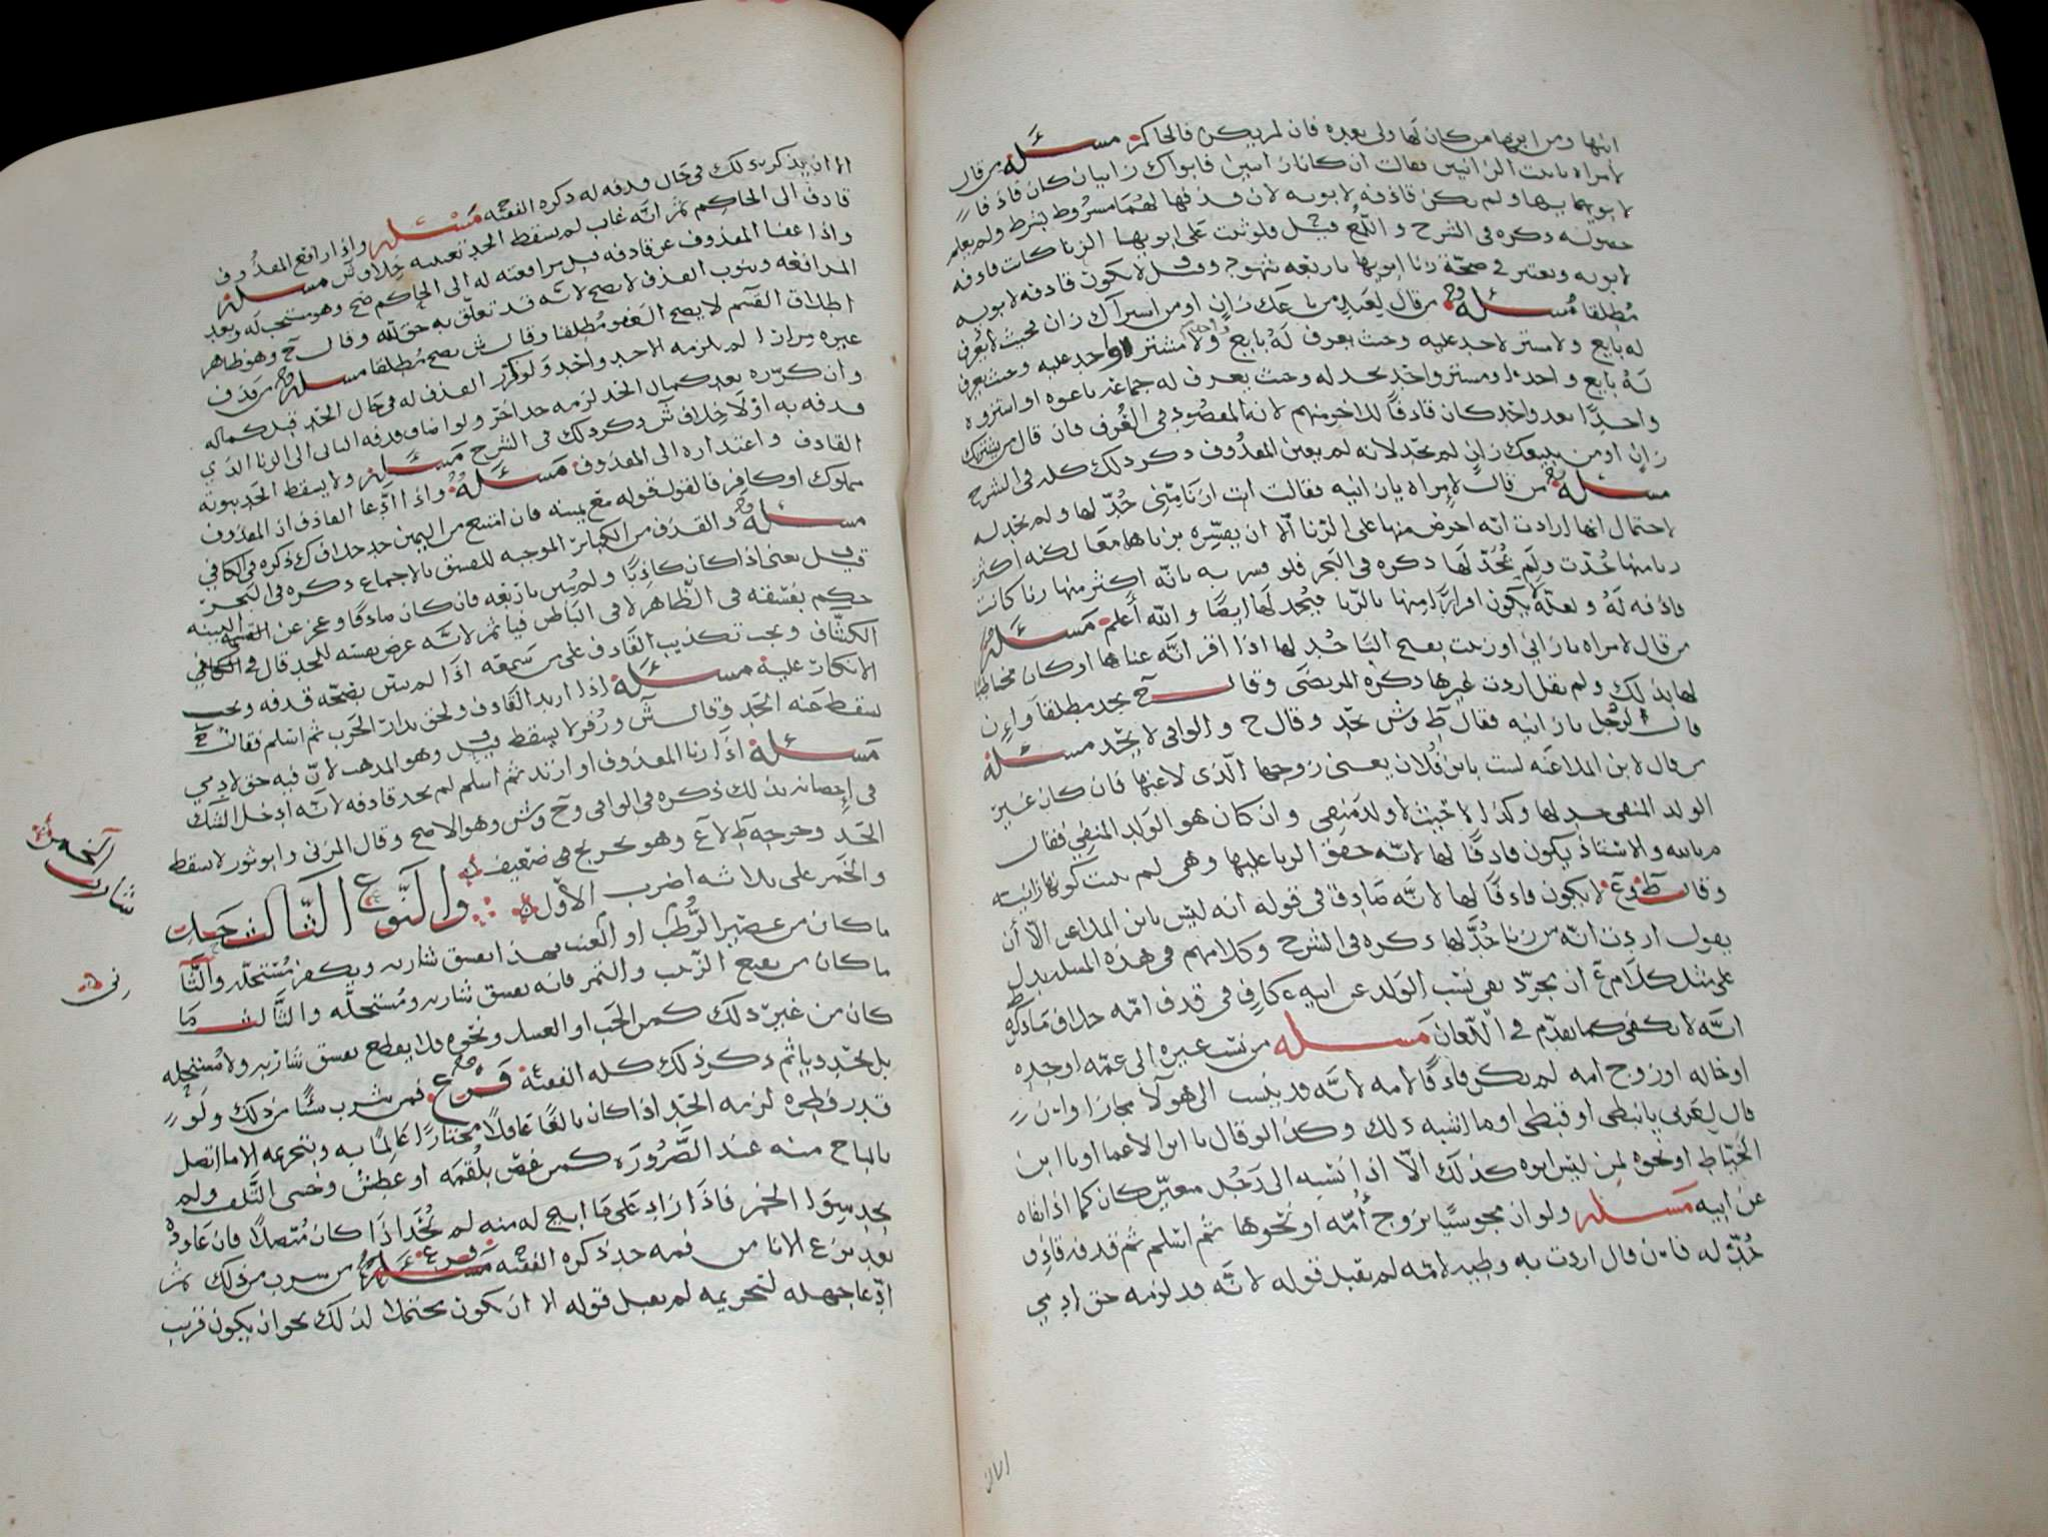 ابنها ومن ابويها من كان لها ولى بعده فان لم يكن فالحاكم مسئله من قال
لامراه يا بنت الزانيين فقالت ان كانا زانيين فابواك زانيان كان قاذفا
لابويها ولم تكن قاذفه لابويه لان قذفها لهما مشروط بشرط ولم يعلم
حصوله ذكره فى الشرح واللمع قيل فلو ثبت على ابويها الزنا كانت قاذفه
لابويه ويعتبر فى صحة زنا ابويها باربعه شهود وقيل لا تكون قاذفه لابويه
مطلقا مسئله من قال لعبد من باعك زان او من اشتراك زان فحيث لا يعرف
له بايع ولا مشتر لاحد عليه وحيث يعرف له بايع ولا مشتر واحد عليه وحيث يعرف
له بايع واحد ومشتر واحد يحد له وحيث يعرف له جماعه باعوه او اشتروه
واحدا بعد واحد كان قاذفا للاخر منهم لانه المقصود فى العرف فان قال من يشتريك
زان او من يبيعك زان لم يحد لانه لم يعين المقذوف ذكر ذلك كله فى الشرح
مسئله من قال لامراه يا زانيه فقالت انت ازنا منى حد لها ولم تحد له
لاحتمال انها ارادت انه احرض منها على الزنا الا ان يفسره بزناهما معا لكنه اكثر
زنا منها حدت ولم يحد لها ذكره فى البحر فلو فسر به بانه اكثر منها زنا كانت
قاذفه له ولعله لا يكون اقرارا منها بالزنا فيحد لها ايضا والله اعلم مسئله
من قال لامراه يا زانى او زنت بفتح التا حد لها اذا اقر انه عناها او كان مخاطبا
لها بذلك ولم يقل اردت غيرها ذكره المرتضى وقال ح يحد مطلقا وان
قال لرجل يا زانيه فقال ط وش يحد وقال ح والوافى لا يحد مسئله
من قال لابن الملاعنه لست بابن فلان يعنى زوجها الذى لاعنها فان كان غير
الولد المنفى حد لها وكذا لاخيث لا ولد منفى وان كان هو الولد المنفى فقال
م بالله والاستاذ يكون قاذفا لها لانه حقق الزنا عليها وهى لم يثبت كونها زانيه
وقال ط وع لا يكون قاذفا لها لانه صادق فى قوله انه ليس بابن الملاعن الا ان
يقول اردت انه من زنا حد لها ذكره فى الشرح وكلامهم فى هذه المسله يدل
على مثل كلام ع ان مجرد نفى نسب الولد عن ابيه كاف فى قذف امه خلاف ما ذكره ط
انه لا يكفى كما تقدم فى اللعان مسله من نسب غيره الى عمه او جده
او خاله او زوج امه لم يكن قاذفا لامه لانه قد ينسب الى هولا مجازا وان
قال لعربى يا نبطى او قبطى او ما اشبه ذلك وكذا لو قال يا ابن الاعما او يا ابن
الخياط او نحوه لمن ليس ابوه كذلك الا اذا نسبه الى رجل معين كان كما اذا نفاه
عن ابيه مسئله ولو ان مجوسيا تزوج امه او نحوها ثم اسلم ثم قذفه قاذف
حد له فان قال اردت به وطيه لامه لم يقبل قوله لانه قد لزمه حق ادمى
الا ان يذكر ذلك فى حال قذفه له ذكره الفقيه ح مسئله واذا رافع المقذوف
قاذفه الى الحاكم ثم انه غاب لم يسقط الحد بغيبته خلاف ش مسئله
واذا عفا المقذوف عن قاذفه قبل مرافعته له الى الحاكم صح وهو مستحب له وبعد
المرافعه وثبوت القذف لا يصح لانه قد تعلق به حق لله وقال ح وهو ظاهر
اطلاق القسم لا يصح العفو مطلقا وقال ش يصح مطلقا مسئله من قذف
غيره مرارا لم يلزمه الا حد واحد ولو كرر القذف له فى حال الحد قبل كماله
وان كرره بعد كمال الحد لزمه حد اخر ولو اضاف قذفه الثانى الى الزنا الذى
قذفه به اولا خلاف ش ذكر ذلك فى الشرح مسئله ولا يسقط الحد بتوبة
القاذف واعتذاره الى المقذوف مسئله واذا ادعا القاذف ان المقذوف
مملوك او كافر فالقول قوله مع يمينه فان امتنع من اليمين حد خلاف ك ذكره فى الكافى
مسئله والقذف من الكبائر الموجبه للفسق بالاجماع ذكره فى البحر
قيل يعنى اذا كان كاذبا ولم يبين باربعه فان كان صادقا وعجز عن البينه
حكم بفسقه فى الظاهر لا فى الباطن فيأثم لانه عرض نفسه للحد قال فى
الكشاف ويجب تكذيب القاذف على من سمعه اذا لم يبين بصحه قذفه ويجب
الانكار عليه مسئله اذا ارتد القاذف ولحق بدار الحرب ثم اسلم فقال ح
يسقط عنه الحد وقال ش وزفر لا يسقط قيل وهو المذهب لان فيه حق لادمى
مسئله اذا زنا المقذوف او ارتد ثم اسلم لم يحد قاذفه لانه ادخل الشك
فى احصانه بذلك ذكره فى الوافى وح وش وهو الاصح وقال المزنى وابو ثور لا يسقط
الحد وخرجه ط لا ع وهو تخريج ضعيف والنوع الثالث حد
شارب الخمر
والخمر على ثلاثه اضرب الاول
ما كان من عصير الرطب او العنب فهذا يفسق شاربه ويكفر مستحله والثا
نى
ما كان من نقيع الزبيب والتمر فانه يفسق شاربه ومستحله والثالث ما
كان من غير ذلك كمن الحب او العسل ونحوه فلا يقطع بفسق شاربه ولا مستحله
بل يحد وياثم ذكر ذلك كله الفقيه ح فرع فمن شرب شئا من ذلك ولو
قدر قطره لزمه الحد اذا كان بالغا عاقلا مختارا عالما به وبتحريمه الا ما اتصل
بالمباح منه عند الضروره كمن غص بلقمه او عطش وخشى التلف ولم
يجد سوا الخمر فاذا زاد على ما ابيح له منه لم يحد اذا كان متصلا فان عاوده
بعد نزع الانا من فمه حد ذكره الفقيه ح فرع من شرب من ذلك ثم
ادعا جهله لتحريمه لم يقبل قوله الا ان يكون محتملا لذلك نحو ان يكون قريب